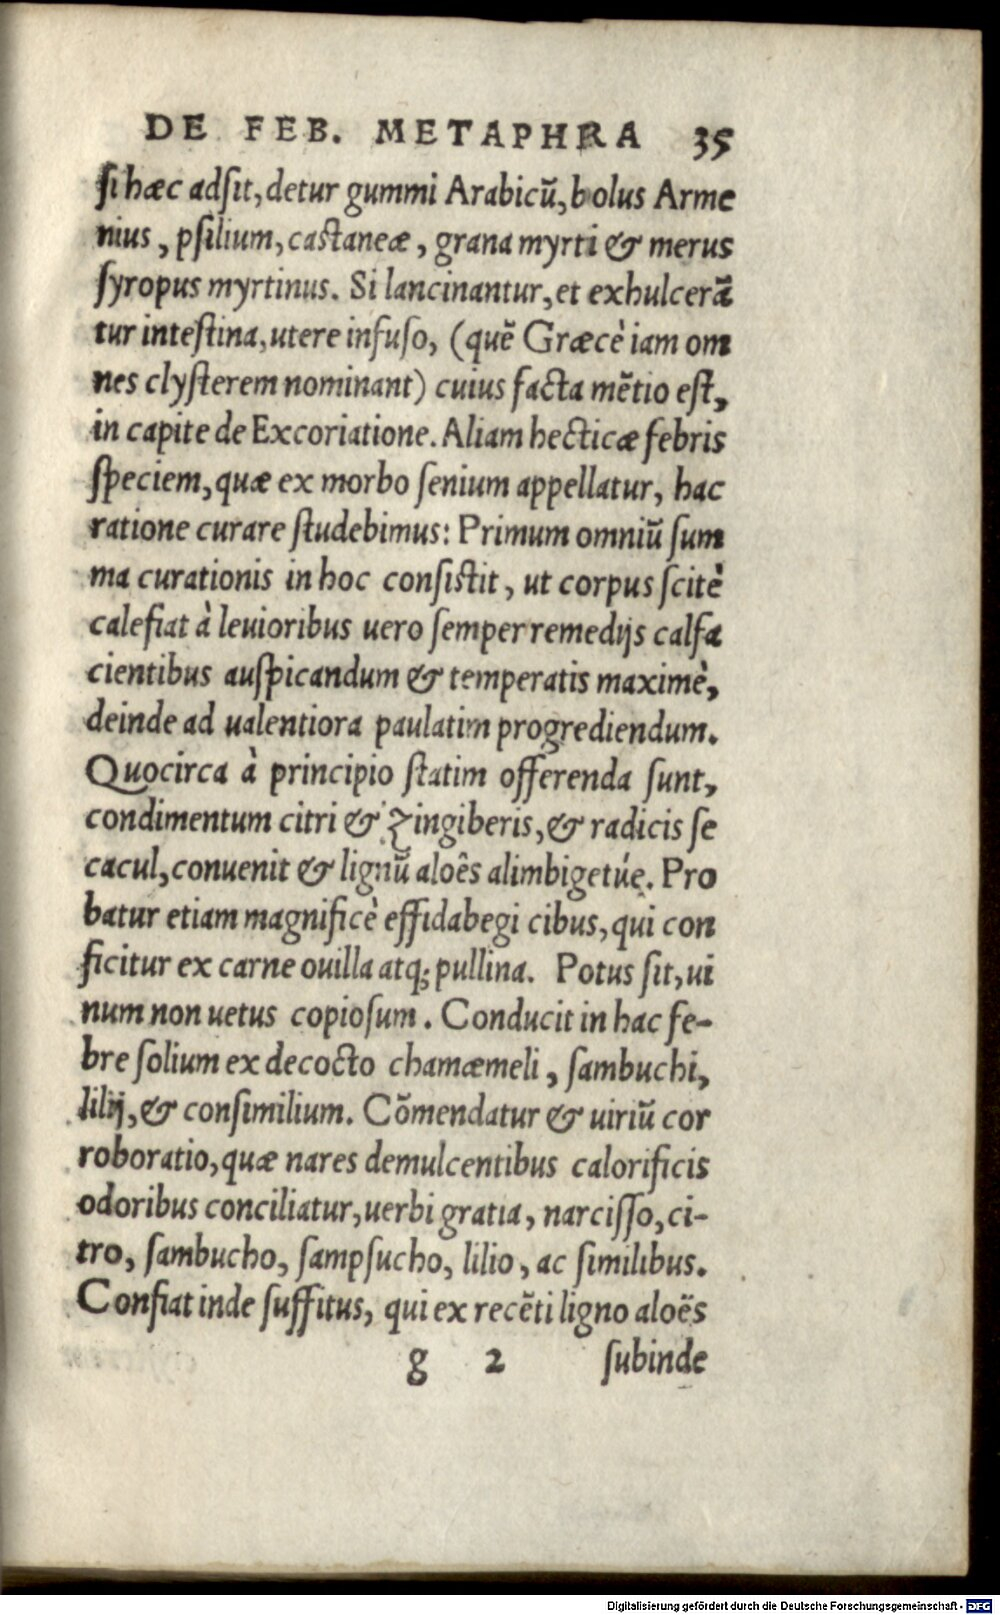 DE FEB. METAPHRA 35
ſi hæc adſit, detur gummi Arabicũ, bolus Arme
nius, pſilium, caſtaneæ, grana myrti & merus
ſyropus myrtinus. Si lancinantur, et exhulcerã
tur inteſtina, utere infuſo, (quẽ Græcè iam om
nes clyſterem nominant) cuius facta mẽtio eſt,
in capite de Excoriatione. Aliam hecticæ febris
ſpeciem, quæ ex morbo ſenium appellatur, hac
ratione curare ſtudebimus: Primum omniũ ſum
ma curationis in hoc conſiſtit, ut corpus ſcitè
calefiat à leuioribus uero ſemper remedijs calfa
cientibus auſpicandum & temperatis maximè,
deinde ad ualentiora paulatim progrediendum.
Quocirca à principio ſtatim offerenda ſunt,
condimentum citri & zingiberis, & radicis ſe
cacul, conuenit & lignũ aloês alimbigetúe. Pro
batur etiam magnificè effidabegi cibus, qui con
ficitur ex carne ouilla atq; pullina. Potus ſit, ui
num non uetus copioſum. Conducit in hac fe-
bre ſolium ex decocto chamæmeli, ſambuchi,
lilij, & conſimilium. Cõmendatur & uiriũ cor
roboratio, quæ nares demulcentibus calorificis
odoribus conciliatur, uerbi gratia, narciſſo, ci-
tro, ſambucho, ſampſucho, lilio, ac ſimilibus.
Confiat inde ſuffitus, qui ex recẽti ligno aloës
g 2 ſubinde
Digitalisierung gefördert durch die Deutsche Forschungsgemeinschaft - DFG